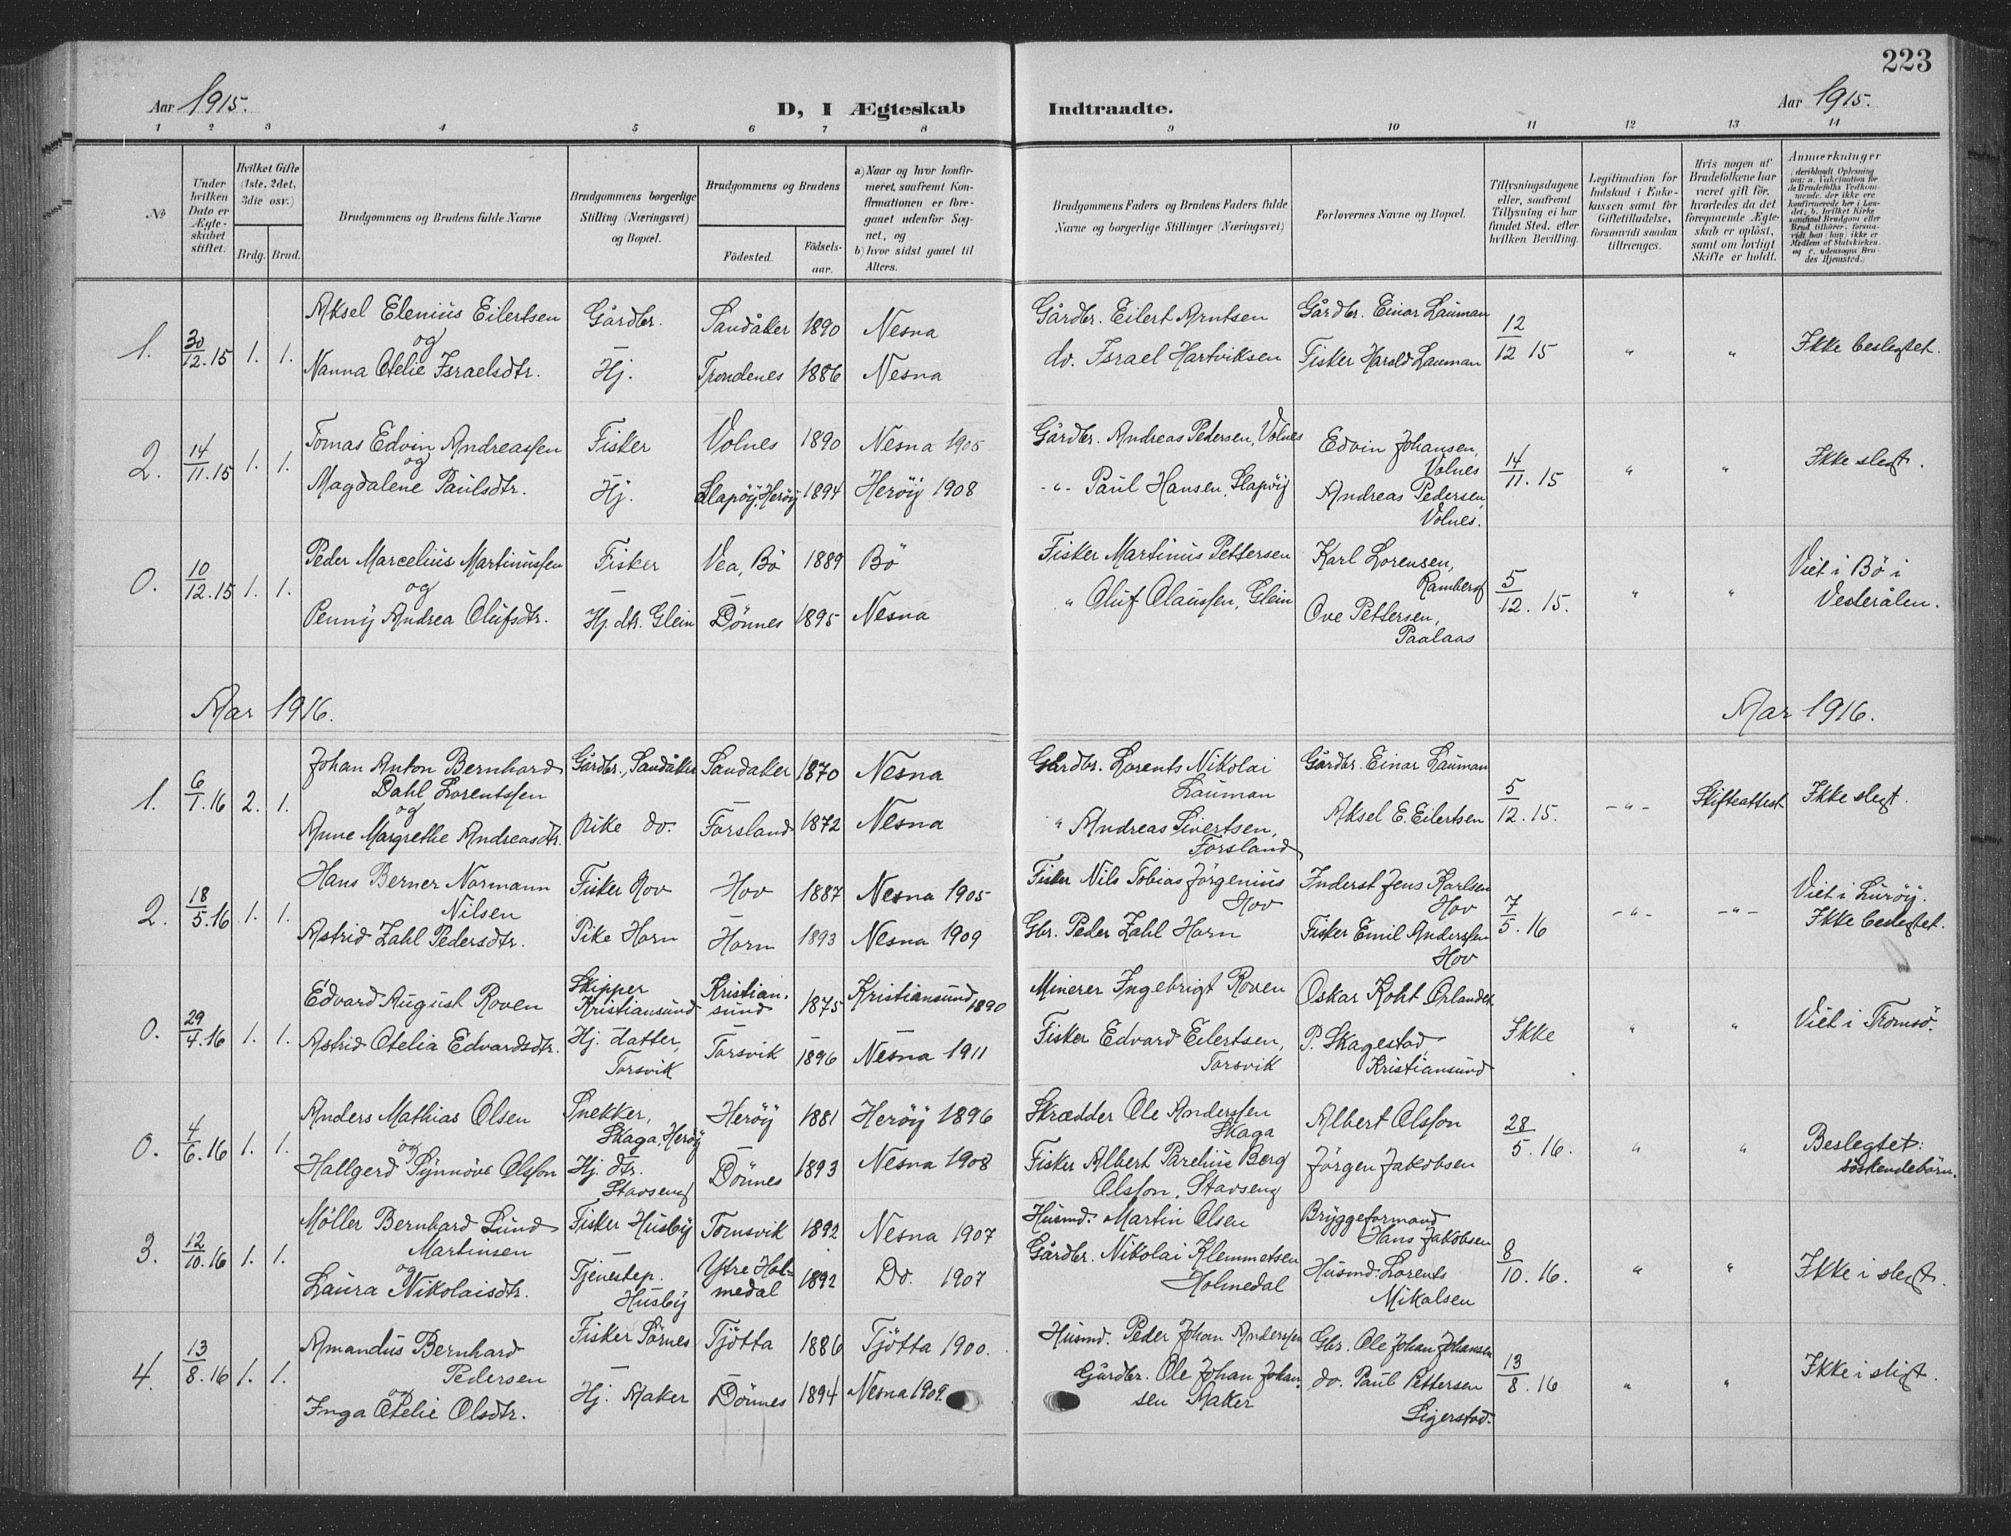 223
Aar 1915. D, I Ægteskab Indtraadte. Aar 1915.
1 2 3 4 5 6 7 8 9 10 11 12 13 14
No
Under hvilken Dato er Ægteskabet stiftet.
Hvilket Gifte (1ste, 2det, 3die osv.)
Brdg. Brud.
Brudgommens og Brudens fulde Navne
Brudgommens borgerlige Stilling (Næringsvei) og Bopæl.
Brudgommens og Brudens
Födested. Födselsaar.
a) Naar og hvor konfirmeret, saafremt Konfirmationen er foregaaet udenfor Sognet, og
b) hvor sidst gaaet til Alters.
Brudgommens Faders og Brudens Faders fulde Navne og borgerlige Stillinger (Næringsvei)
Forlovernes Navne og Bopæl.
Tillysningsdagene eller, saafremt Tillysning ei har fundet Sted, efter hvilken Bevilling.
Legitimation for Indskud i Enkekassen samt for Giftetilladelse, forsaavidt saadan tiltrænges.
Hvis nogen af Brudefolkene har været gift för, hvorledes da det foregaaende Ægteskab er oplöst, samt om lovligt Skifte er holdt.
Anmærkninger
1. 30/12.15 1. 1. Aksel Elenius Eilertsen og Nanna Otelie Israelsdtr.
Gårdbr. Hj.
Sandåker 1890 Nesna
Trondenes 1886 Nesna
Gårdbr. Eilert Arntsen
do. Israel Hartviksen
Gårdbr. Einar Lauman
Fisker Harald Lauman
12/12 15 " " Ikke beslegtet.
2. 14/11.15 1. 1. Tomas Edvin Andreassen og Magdalene Paulsdtr.
Fisker Hj.
Volnes 1890 Nesna 1905
Slapöy, Heröy 1894 Heröy 1908
Gårdbr. Andreas Pedersen, Volnes
-"- Paul Hansen, Slapöy
Edvin Johansen, Volnes
Andreas Pedersen Volnes.
14/11.15 " " Ikke slegt.
0. 10/12.15 1. 1. Peder Marcelius Martinussen og Penny Andrea Olufsdtr.
Fisker
Hj. dtr. Glein
Vea, Bö 1889 Bö
Dönnes 1895 Nesna
Fisker Martinus Pettersen
" Oluf Olaussen, Glein
Karl Lorensen, Ramberg
Ove Pettersen, Paalaas
5/12.15. " " Viet i Bö i Vesterålen.
Aar 1916. Aar 1916.
1. 6/1.16 2. 1. Johan Anton Bernhard Dahl Lorentssen og Anne Margrethe Andreasdtr.
Gårdbr., Sandåker
Pike do.
Sandaker 1870 Nesna
Forsland 1872 Nesna
Gårdbr. Lorents Nikolai Lauman
" Andreas Sivertsen, Forsland
Gårdbr. Einar Lauman
Aksel E. Eilertsen
5/12.15. -"- Skifteattest Ikke slegt.
2. 18/5.16 1. 1. Hans Berner Normann Nilsen
Astrid Zahl Pedersdtr.
Fisker Hov
Pike Horn
Hov 1887 Nesna 1905
Horn 1893 Nesna 1909
Fisker Nils Tobias Jörgenius Hov
Gbr. Peder Zahl Horn
Inderst Jens Karlsen Hov
Fisker Emil Anderssen Hov
7/5.16 -"- -"- Viet i Luröy. Ikke beslegtet.
0. 29/4.16 1. 1. Edvard August Roven
Astrid Otelia Edvardsdtr.
Skipper Kristiansund
Hj. datter, Torsvik
Kristiansund 1875 Kristiansund 1890
Torsvik 1896 Nesna 1911
Minerer Ingebrigt Roven
Fisker Edvard Eilertsen, Torsvik
Oskar Koht
P. Skagestad Kristiansund
Ikke " " Viet i Tromsö.
0. 4/6.16 1. 1. Anders Mathias Olsen og Hallgerd Synnöve Olsson
Snekker, Skaga, Heröy
Hj. dtr. Stavseng
Heröy 1881 Heröy 1896
Dönnes 1893 Nesna 1908
Skrædder Ole Anderssen Skaga
Fisker Albert Parelius Berg Olsson, Stavseng
Albert Olsson
Jörgen Jakobsen
28/5.16. " " Beslegtet: söskendebörn.
3. 12/10.16 1. 1. Møller Bernhard Lund Martinsen og Laura Nikolaisdtr.
Fisker Husby
Tjenestep. Husby
Tomsvik 1892 Nesna 1907
Ytre Holmedal 1892 Do. 1907
Husmd. Martin Olsen
Gårdbr. Nikolai Klemmetsen Holmedal
Bryggeformand Hans Jakobsen
Husmd. Lorents Mikalsen
8/10.16. " " Ikke i slegt.
4. 13/8.16 1. 1. Amandus Bernhard Pedersen og Inga Otelie Olsdtr.
Fisker Sörnes
Hj. Aaker
Tjötta 1886 Tjötta 1900.
Dönnes 1894 Nesna 1909.
Husmd. Peder Johan Anderssen
Gårdbr. Ole Johan Johansen Aaker
Gbr. Ole Johan Johansen
do. Paul Pettersen Sigerstad.
13/8.16 " " Ikke i slegt.